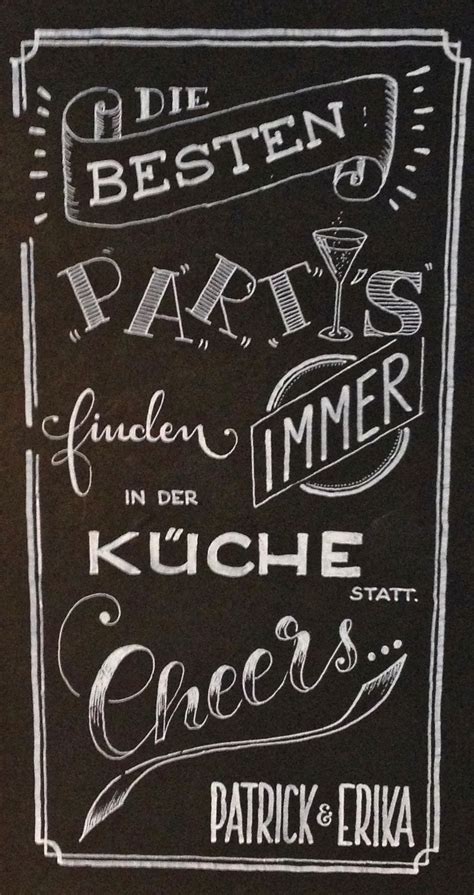 DIE
BESTEN
PARTYS
finden IMMER
IN DER
KÜCHE
STATT.
Cheers...
PATRICK & ERIKA